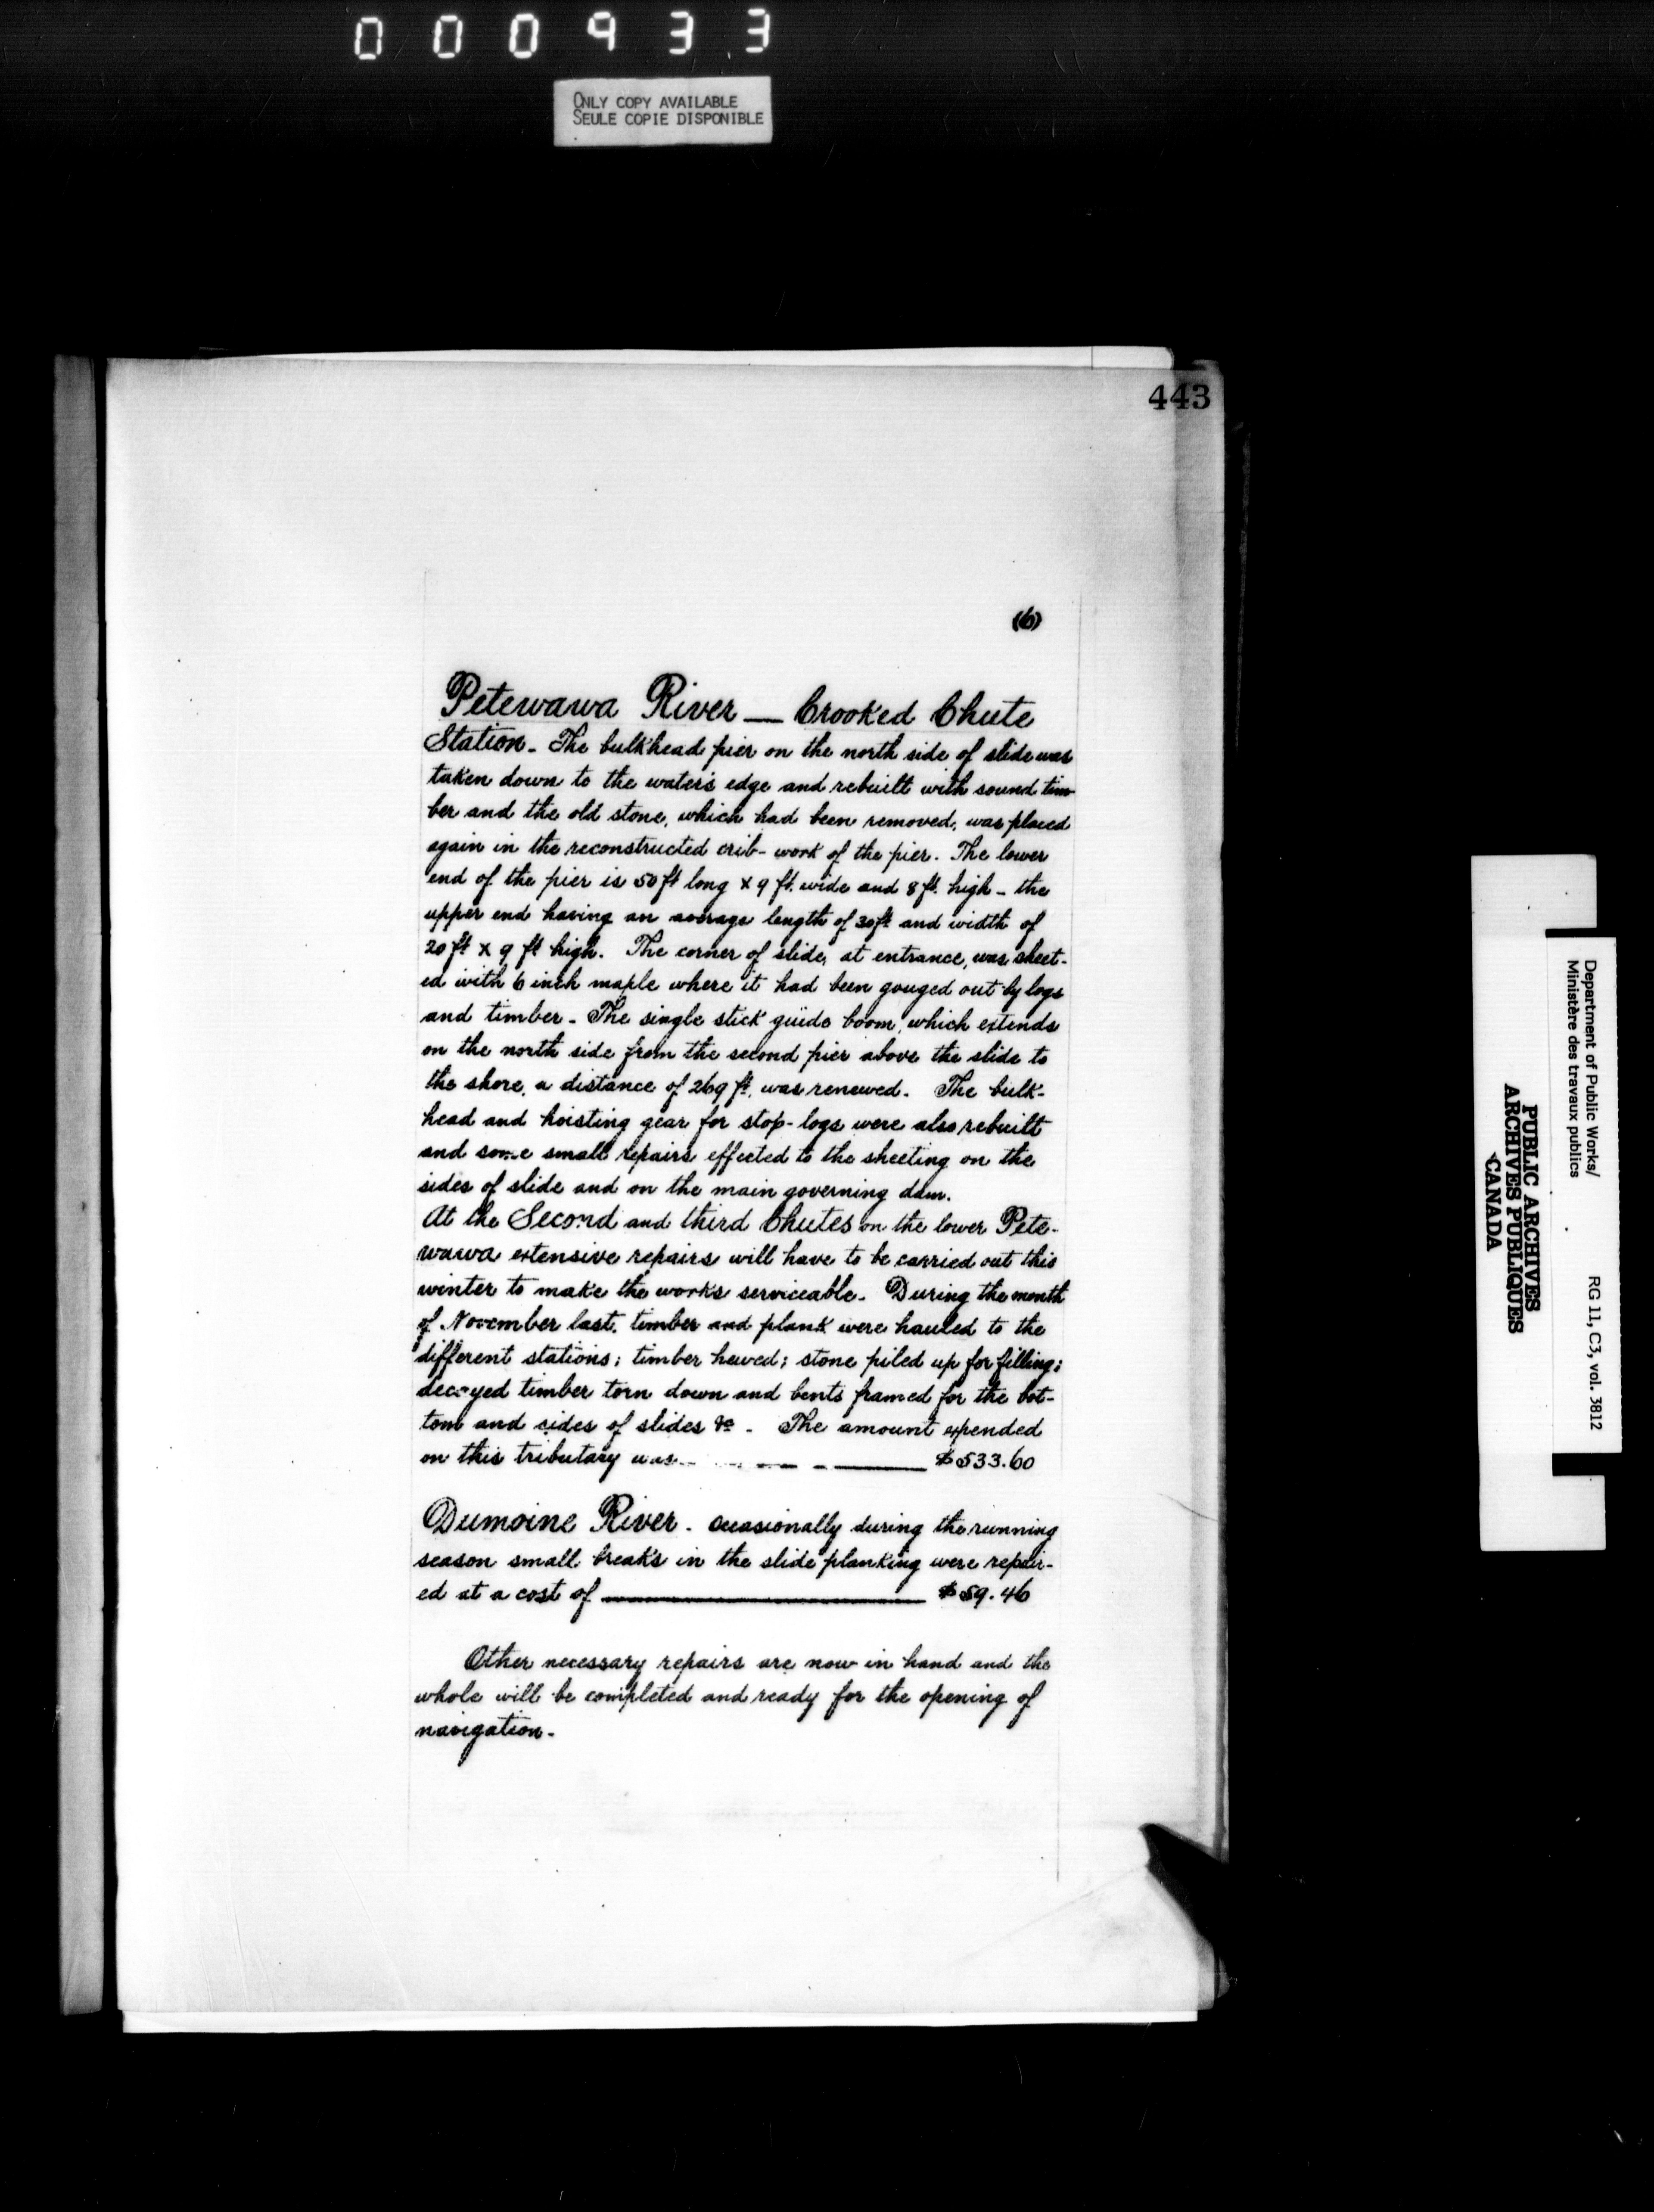 000933
ONLY COPY AVAILABLE
SEULE COPIE DISPONIBLE
443
(6)
Petewawa River — Crooked Chute
Station - The bulkhead pier on the north side of slide was
taken down to the water's edge and rebuilt with sound tim-
ber and the old stone, which had been removed, was placed
again in the reconstructed crib-work of the pier. The lower
end of the pier is 50 ft long x 9 ft. wide and 8 ft. high - the
upper end having an average length of 30 ft and width of
20 ft x 9 ft high. The corner of slide, at entrance, was sheet-
ed with 6 inch maple where it had been gouged out by logs
and timber - The single stick guide boom, which extends
on the north side from the second pier above the slide to
the shore, a distance of 269 ft, was renewed. The bulk-
head and hoisting gear for stop-logs were also rebuilt
and some small repairs effected to the sheeting on the
sides of slide and on the main governing dam.
At the Second and third Chutes on the lower Pete-
wawa extensive repairs will have to be carried out this
winter to make the works serviceable. During the month
of November last, timber and plank were hauled to the
different stations; timber hewed; stone piled up for filling;
decayed timber torn down and bents framed for the bot-
tom and sides of slides &c - The amount expended
on this tributary was - - - — $533.60
Dumoine River - occasionally during the running
season small breaks in the slide planking were repair-
ed at a cost of — $59.46
Other necessary repairs are now in hand and the
whole will be completed and ready for the opening of
navigation -
Department of Public Works/
Ministère des travaux publics
RG 11, C3, vol. 3812
PUBLIC ARCHIVES
ARCHIVES PUBLIQUES
CANADA